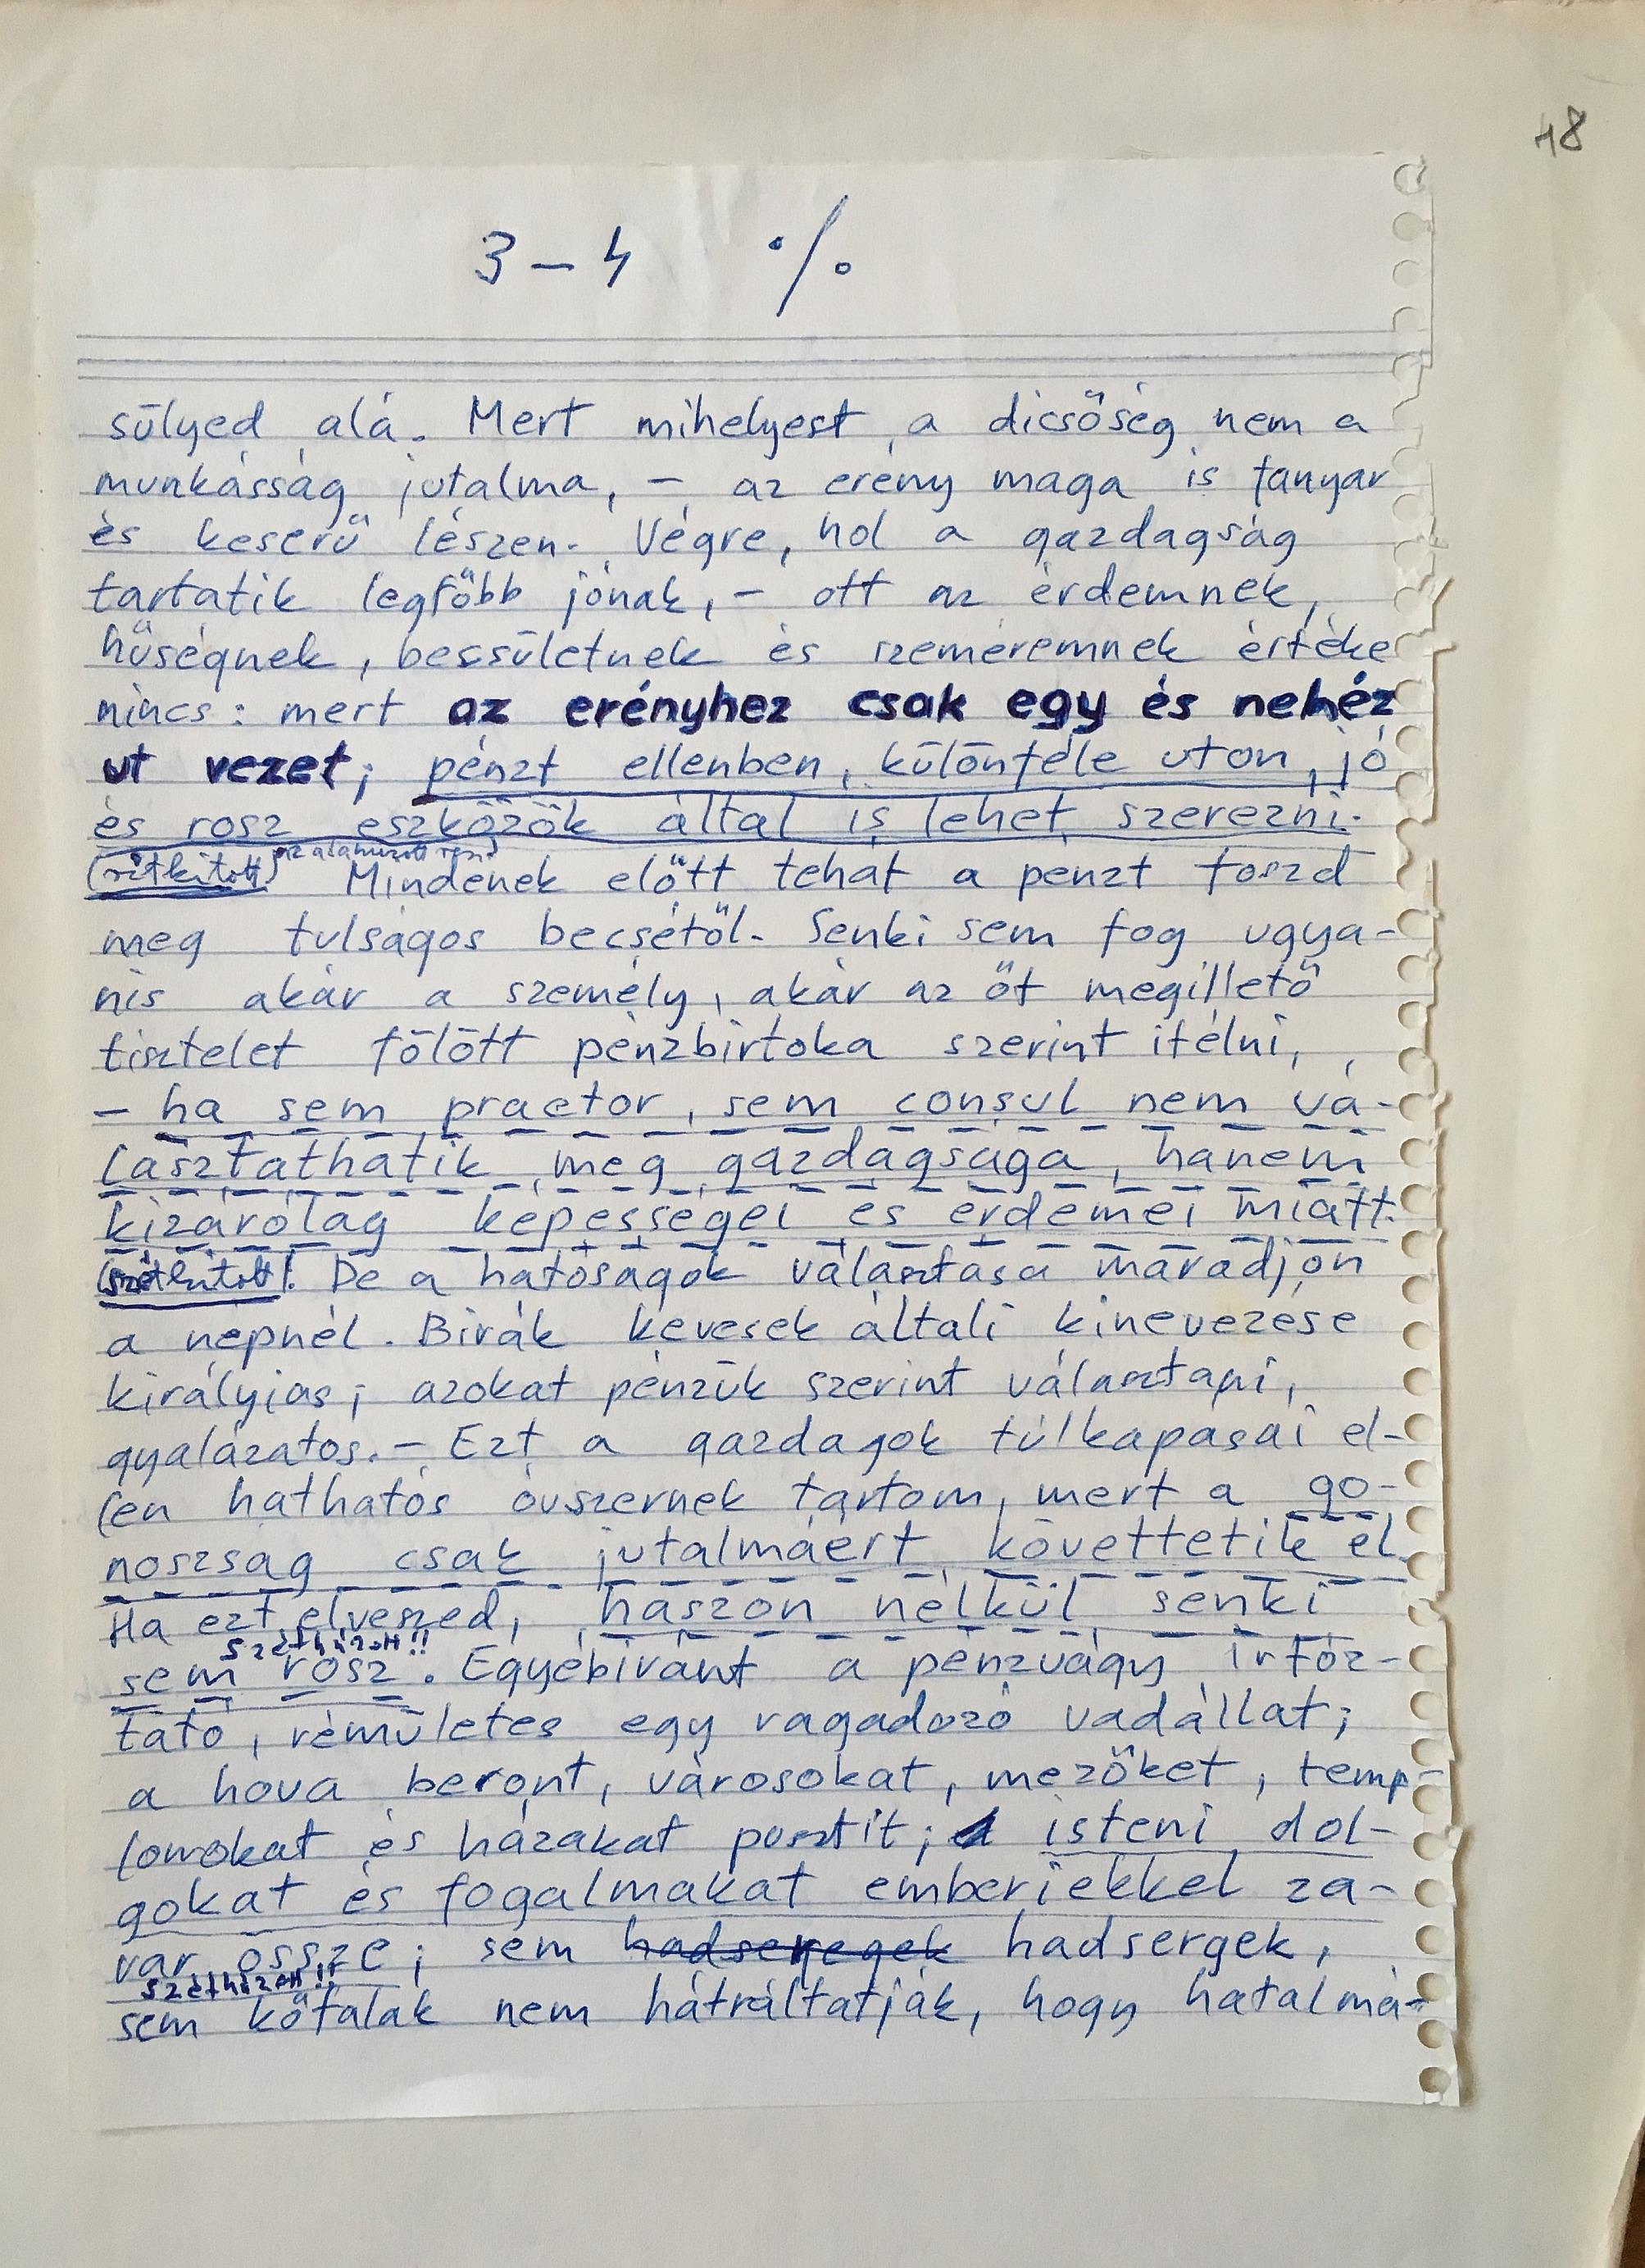 48
3 – 4 ·/.
sülyed alá. Mert mihelyest a dicsőség nem a
munkásság jutalma, – az erény maga is fanyar
és keserű lészen. Végre, hol a gazdagság
tartatik legfőbb jónak, – ott az érdemnek,
hűségnek, becsületnek és szeméremnek értéke
nincs: mert az erényhez csak egy és nehéz
ut vezet; pénzt ellenben, különféle uton, jó
és rosz eszközök által is lehet szerezni.
az aláhúzott rész
(ritkított) Mindenek előtt tehát a pénzt foszd
meg tulságos becsétől. Senki sem fog ugya-
nis akár a személy, akár az őt megillető
tisztelet fölött pénzbirtoka szerint itélni,
– ha sem praetor, sem consul nem vá-
lasztathatik meg gazdagsága, hanem
kizárólag képességei és érdemei miatt.
De a hatóságok választása maradjon
a népnél. Birák kevesek általi kinevezése
királyias; azokat pénzük szerint választani,
gyalázatos. – Ezt a gazdagok túlkapásai el-
len hathatós óvszernek tartom, mert a go-
noszság csak jutalmáért követtetik el.
Ha ezt elveszed, haszon nélkül senki
széthúzott!!
sem rosz. Egyébiránt a pénzvágy irtóz-
tató, rémületes egy ragadozó vadállat;
a hova beront, városokat, mezőket, temp-
lomokat és házakat pusztit; isteni dol-
gokat és fogalmakat emberiekkel za-
var össze; sem hadseregek hadsergek,
széthúzott!!
sem kőfalak nem hátráltatják, hogy hatalmá-